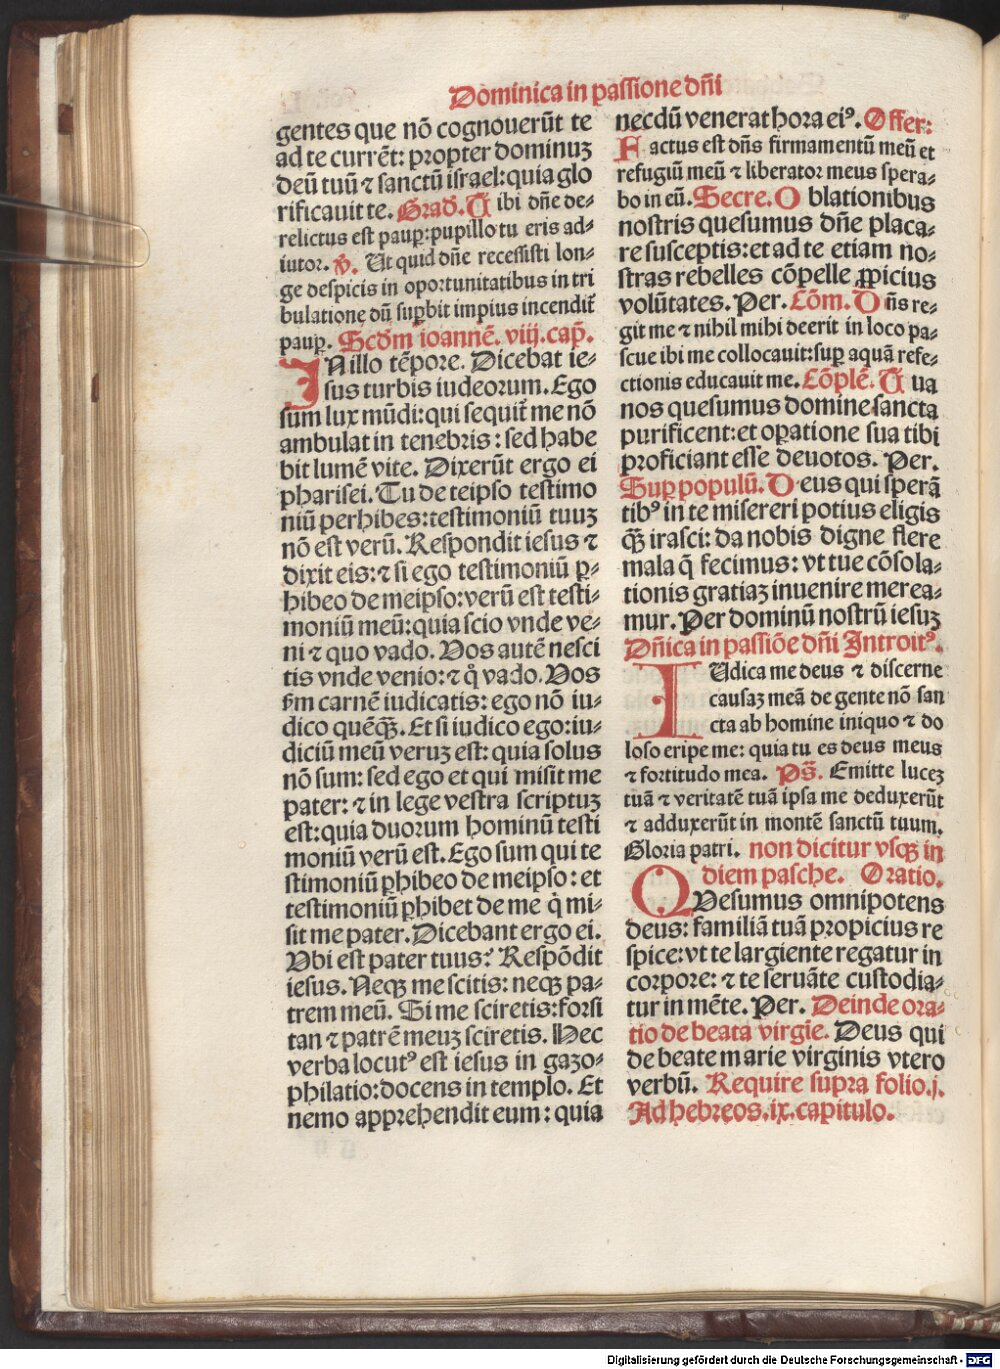 Dominica in passione dñi
gentes que nõ cognouerũt te
ad te currẽt: propter dominuʒ
deũ tuũ ⁊ sanctũ israel: quia glo
rificauit te. Grad. Tibi dñe de⸗
relictus est paup̲: pupillo tu eris ad⸗
iutor. ℣. Ut quid dñe recessisti lon⸗
ge despicis in oportunitatibus in tri
bulatione dũ sup̲bit impius incendit᷑
paup̲. Scd̃m ioannẽ. viij. cap̃.
IN illo tẽpore. Dicebat ie⸗
sus turbis iudeorum. Ego
sum lux mũdi: qui sequit᷑ me nõ
ambulat in tenebris: sed habe
bit lumẽ vite. Dixerũt ergo ei
pharisei. Tu de teipso testimo
niũ perhibes: testimoniũ tuuʒ
nõ est verũ. Respondit iesus ⁊
dixit eis: ⁊ si ego testimoniũ p̲⸗
hibeo de meipso: verũ est testi⸗
moniũ meũ: quia scio vnde ve⸗
ni ⁊ quo vado. Vos autẽ nesci
tis vnde venio: ⁊ q̇ vado. Vos
ẜm carnẽ iudicatis: ego nõ iu⸗
dico quẽqꝫ. Et si iudico ego: iu⸗
diciũ meũ veruʒ est: quia solus
nõ sum: sed ego et qui misit me
pater: ⁊ in lege vestra scriptuʒ
est: quia duorum hominũ testi
moniũ verũ est. Ego sum qui te
stimoniũ p̲hibeo de meipso: et
testimoniũ p̲hibet de me q̇ mi⸗
sit me pater. Dicebant ergo ei.
Vbi est pater tuus? Respõdit
iesus. Neqꝫ me scitis: neqꝫ pa⸗
trem meũ. Si me sciretis: forsi
tan ⁊ patrẽ meuʒ sciretis. Hec
verba locut⁹ est iesus in gazo⸗
philatio: docens in templo. Et
nemo apprehendit eum: quia
necdũ venerat hora ei⁹. Offer:
Factus est dñs firmamentũ meũ et
refugiũ meũ ⁊ liberator meus spera⸗
bo in eũ. Secre. Oblationibus
nostris quesumus dñe placa⸗
re susceptis: et ad te etiam no⸗
stras rebelles cõpelle ꝓpicius
volũtates. Per. Cõm. Dñs re⸗
git me ⁊ nihil mihi deerit in loco pa⸗
scue ibi me collocauit: sup̲ aquã refe⸗
ctionis educauit me. Cõplẽ. Tua
nos quesumus domine sancta
purificent: et op̲atione sua tibi
proficiant esse deuotos. Per.
Sup̲ populũ. Deus qui sperã
tib⁹ in te misereri potius eligis
qꝫ irasci: da nobis digne flere
mala q̃ fecimus: vt tue cõsola⸗
tionis gratiaʒ inuenire merea⸗
mur. Per dominũ nostrũ iesuʒ
Dñica in passiõe dñi Introit⁹.
IUdica me deus ⁊ discerne
causaʒ meã de gente nõ san
cta ab homine iniquo ⁊ do
loso eripe me: quia tu es deus meus
⁊ fortitudo mea. Ps̃. Emitte luceʒ
tuã ⁊ veritatẽ tuã ipsa me deduxerũt
⁊ adduxerũt in montẽ sanctũ tuum.
Gloria patri. non dicitur vsqꝫ in
diem pasche. Oratio.
QVesumus omnipotens
deus: familiã tuã propicius re
spice: vt te largiente regatur in
corpore: ⁊ te seruãte custodia⸗
tur in mẽte. Per. Deinde ora⸗
tio de beata virgĩe. Deus qui
de beate marie virginis vtero
verbũ. Require supra folio. j.
Ad hebreos. ix. capitulo.
Digitalisierung gefördert durch die Deutsche Forschungsgemeinschaft - DFG